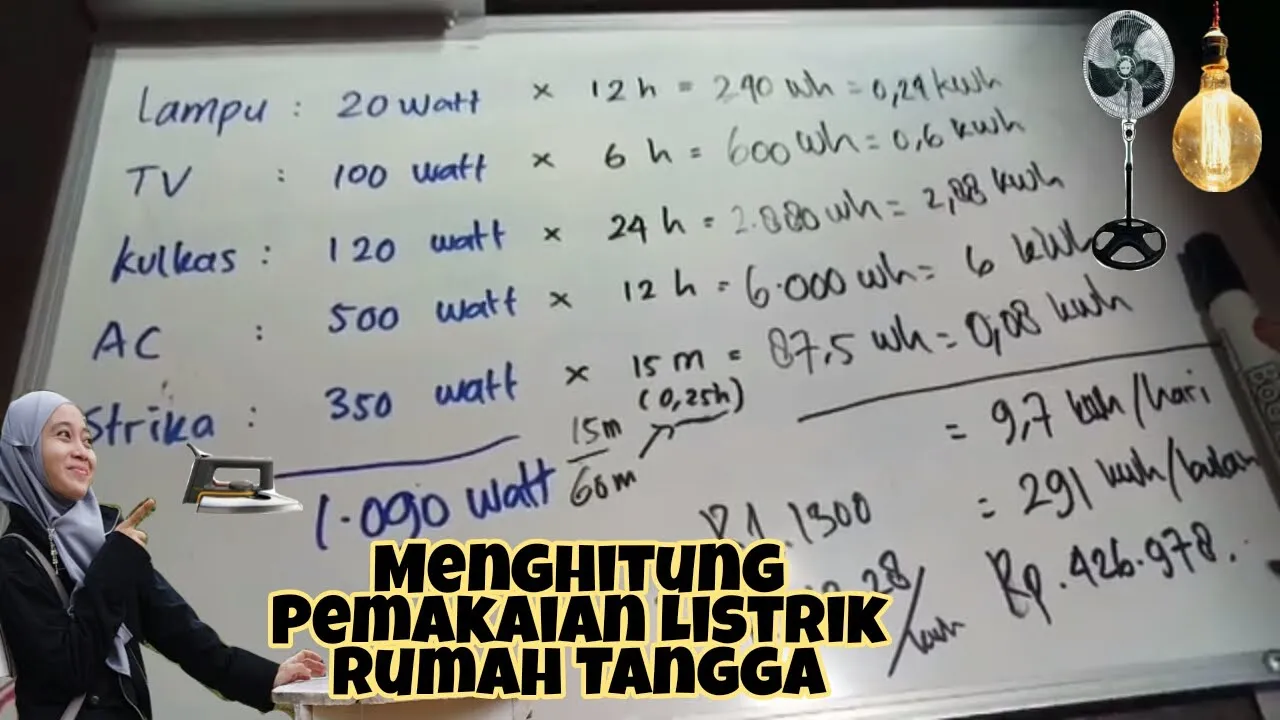 Lampu : 20 watt × 12 h = 240 wh = 0,24 kwh
TV : 100 watt × 6 h = 600 wh = 0,6 kwh
kulkas : 120 watt × 24 h = 2.880 wh = 2,88 kwh
AC : 500 watt × 12 h = 6.000 wh = 6 kwh
Strika : 350 watt × 15 m = 87,5 wh = 0,08 kwh
(0,25h)
15m
60m
1.090 watt
= 9,7 kwh/hari
= 291 kwh/bulan
R1. 1300
28/kwh
Rp. 426.978.
Menghitung
Pemakaian Listrik
Rumah Tangga